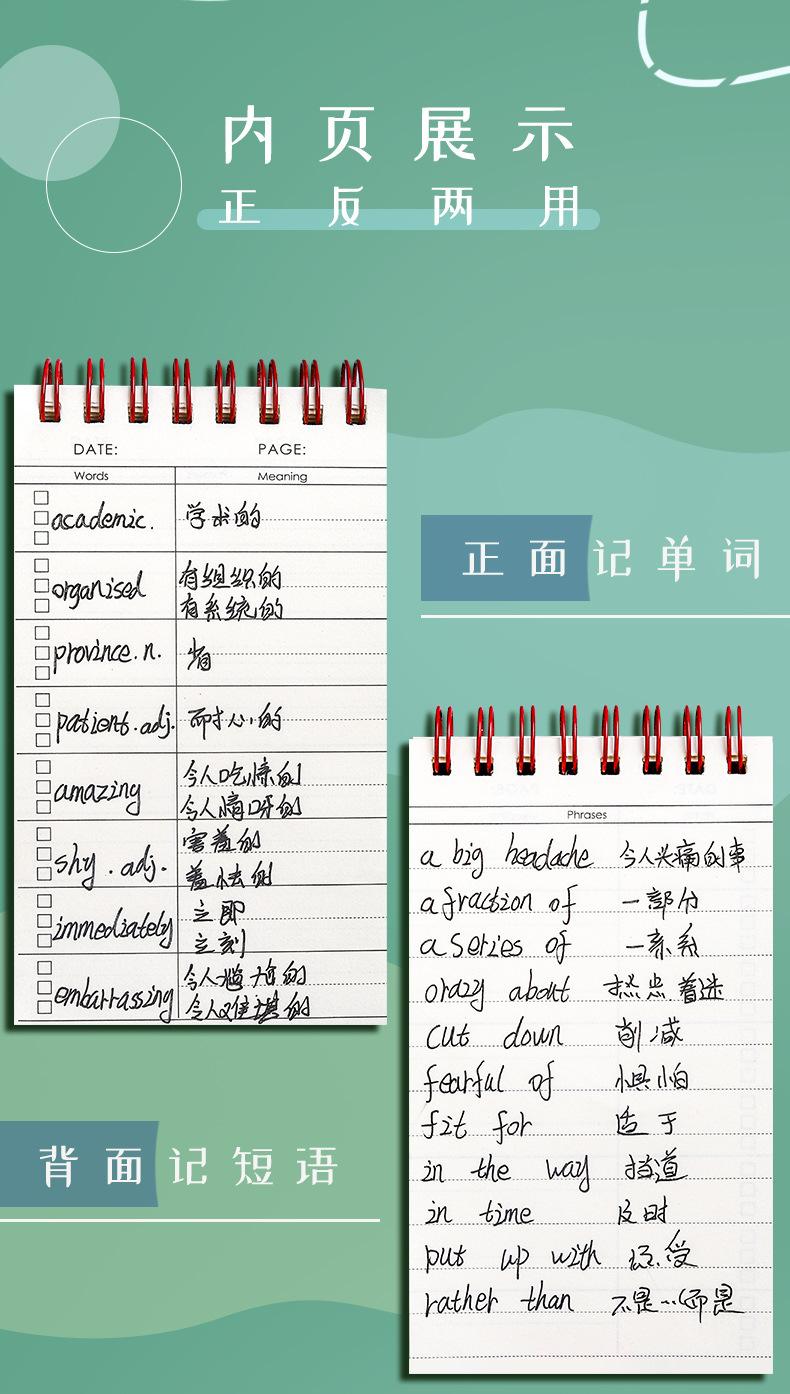 内页展示
正反两用
DATE: PAGE:
Words Meaning
academic. 学术的
organised 有组织的
有系统的
province.n. 省
patient.adj. 耐心的
amazing 令人吃惊的
令人惊讶的
shy.adj. 害羞的
羞怯的
immediately 立即
立刻
embarrassing 令人尴尬的
令人难堪的
正面记单词
Phrases
a big headache 令人头痛的事
a fraction of 一部分
a series of 一系列
crazy about 热衷 着迷
cut down 削减
fearful of 惧怕
fit for 适于
in the way 挡道
in time 及时
put up with 忍受
rather than 不是…而是
背面记短语